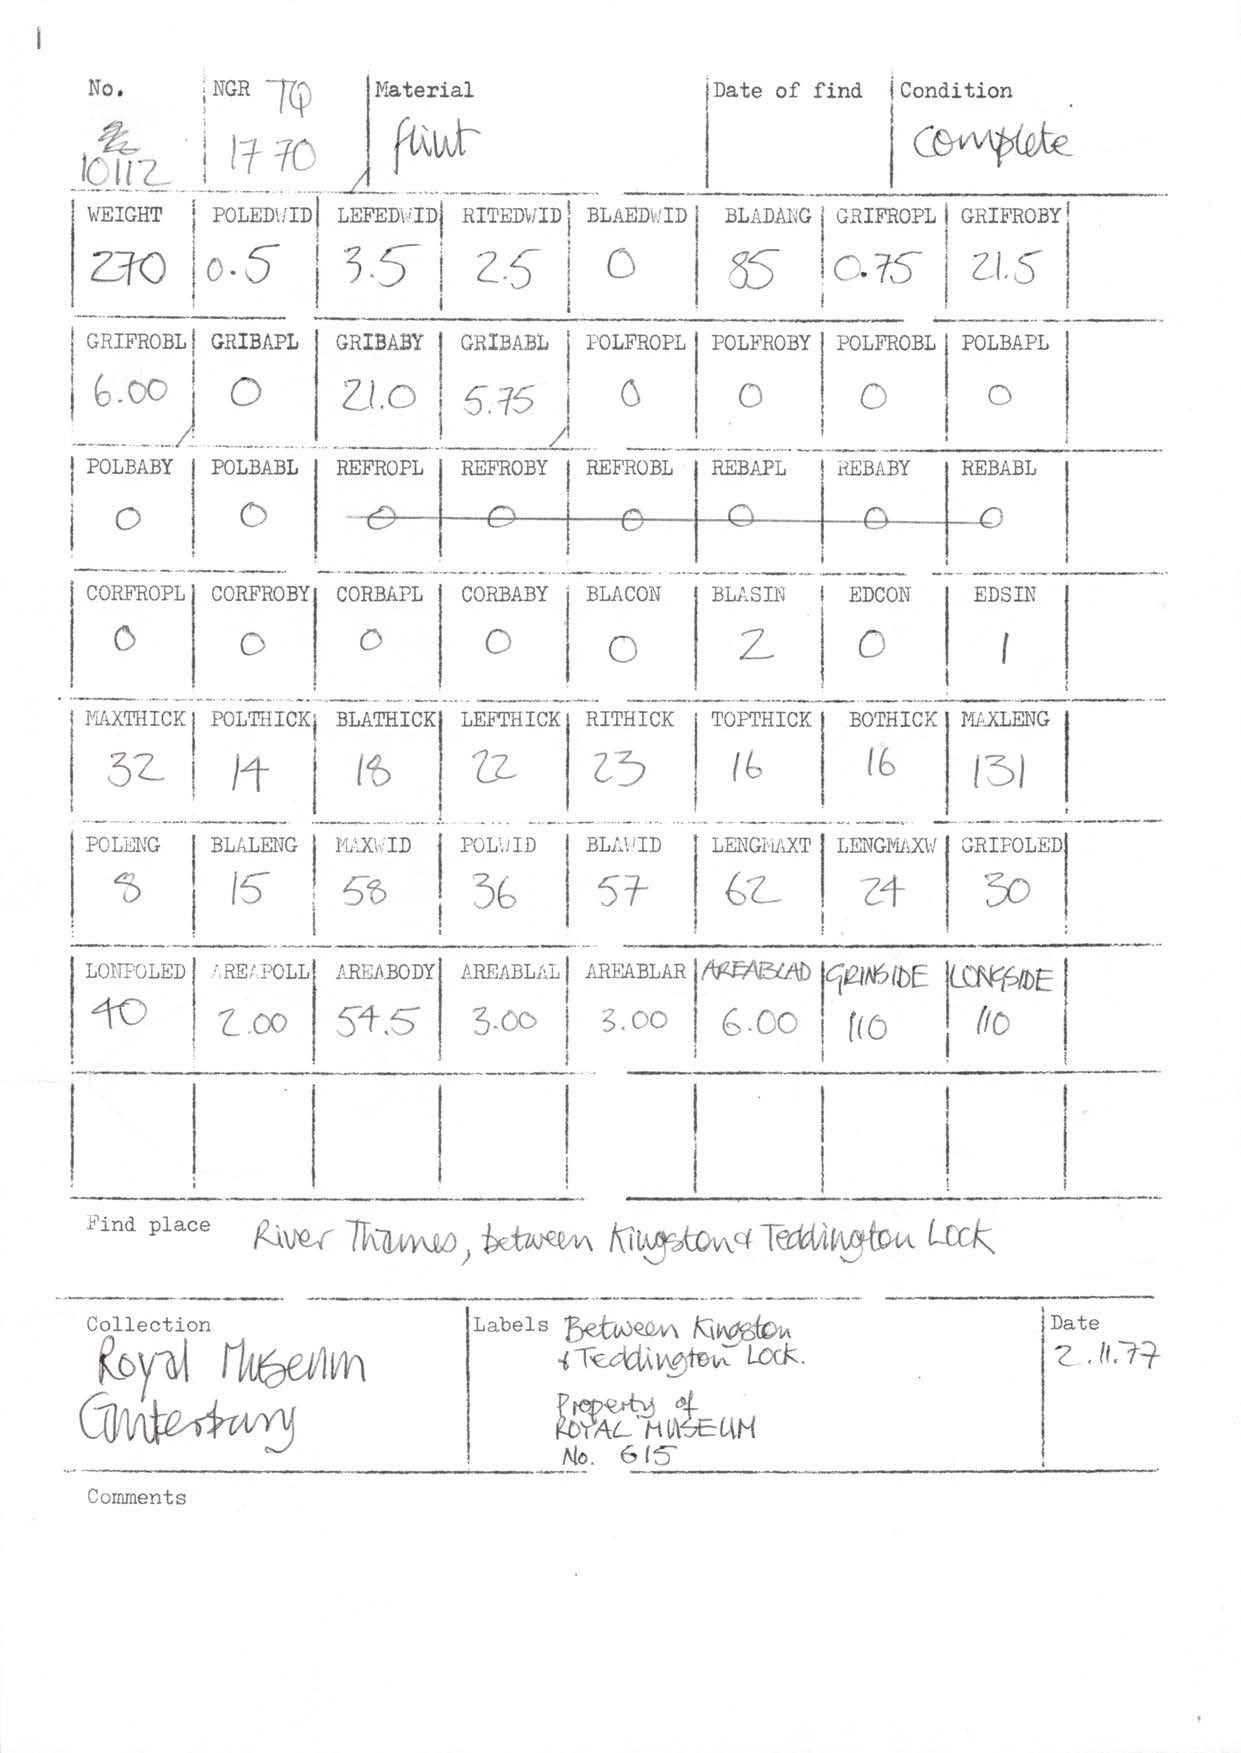 No. NGR TQ Material Date of find Condition
10112 17 70 flint complete
WEIGHT POLEDWID LEFEDWID RITEDWID BLAEDWID BLADANG GRIFROPL GRIFROBY
270 0.5 3.5 2.5 0 85 0.75 21.5
GRIFROBL GRIBAPL GRIBABY GRIBABL POLFROPL POLFROBY POLFROBL POLBAPL
6.00 0 21.0 5.75 0 0 0 0
POLBABY POLBABL REFROPL REFROBY REFROBL REBAPL REBABY REBABL
0 0 0 0 0 0 0 0
CORFROPL CORFROBY CORBAPL CORBABY BLACON BLASIN EDCON EDSIN
0 0 0 0 0 2 0 1
MAXTHICK POLTHICK BLATHICK LEFTHICK RITHICK TOPTHICK BOTHICK MAXLENG
32 14 18 22 23 16 16 131
POLENG BLALENG MAXWID POLWID BLAWID LENGMAXT LENGMAXW GRIPOLED
8 15 58 36 57 62 24 30
LONPOLED AREAPOLL AREABODY AREABLAL AREABLAR AREABLAD GRINSIDE LONGSIDE
40 2.00 54.5 3.00 3.00 6.00 110 110
Find place River Thames, between Kingston & Teddington Lock
Collection
Royal Museum
Canterbury
Labels Between Kingston
& Teddington Lock.
Property of
ROYAL MUSEUM
No. 615
Date
2.11.77
Comments